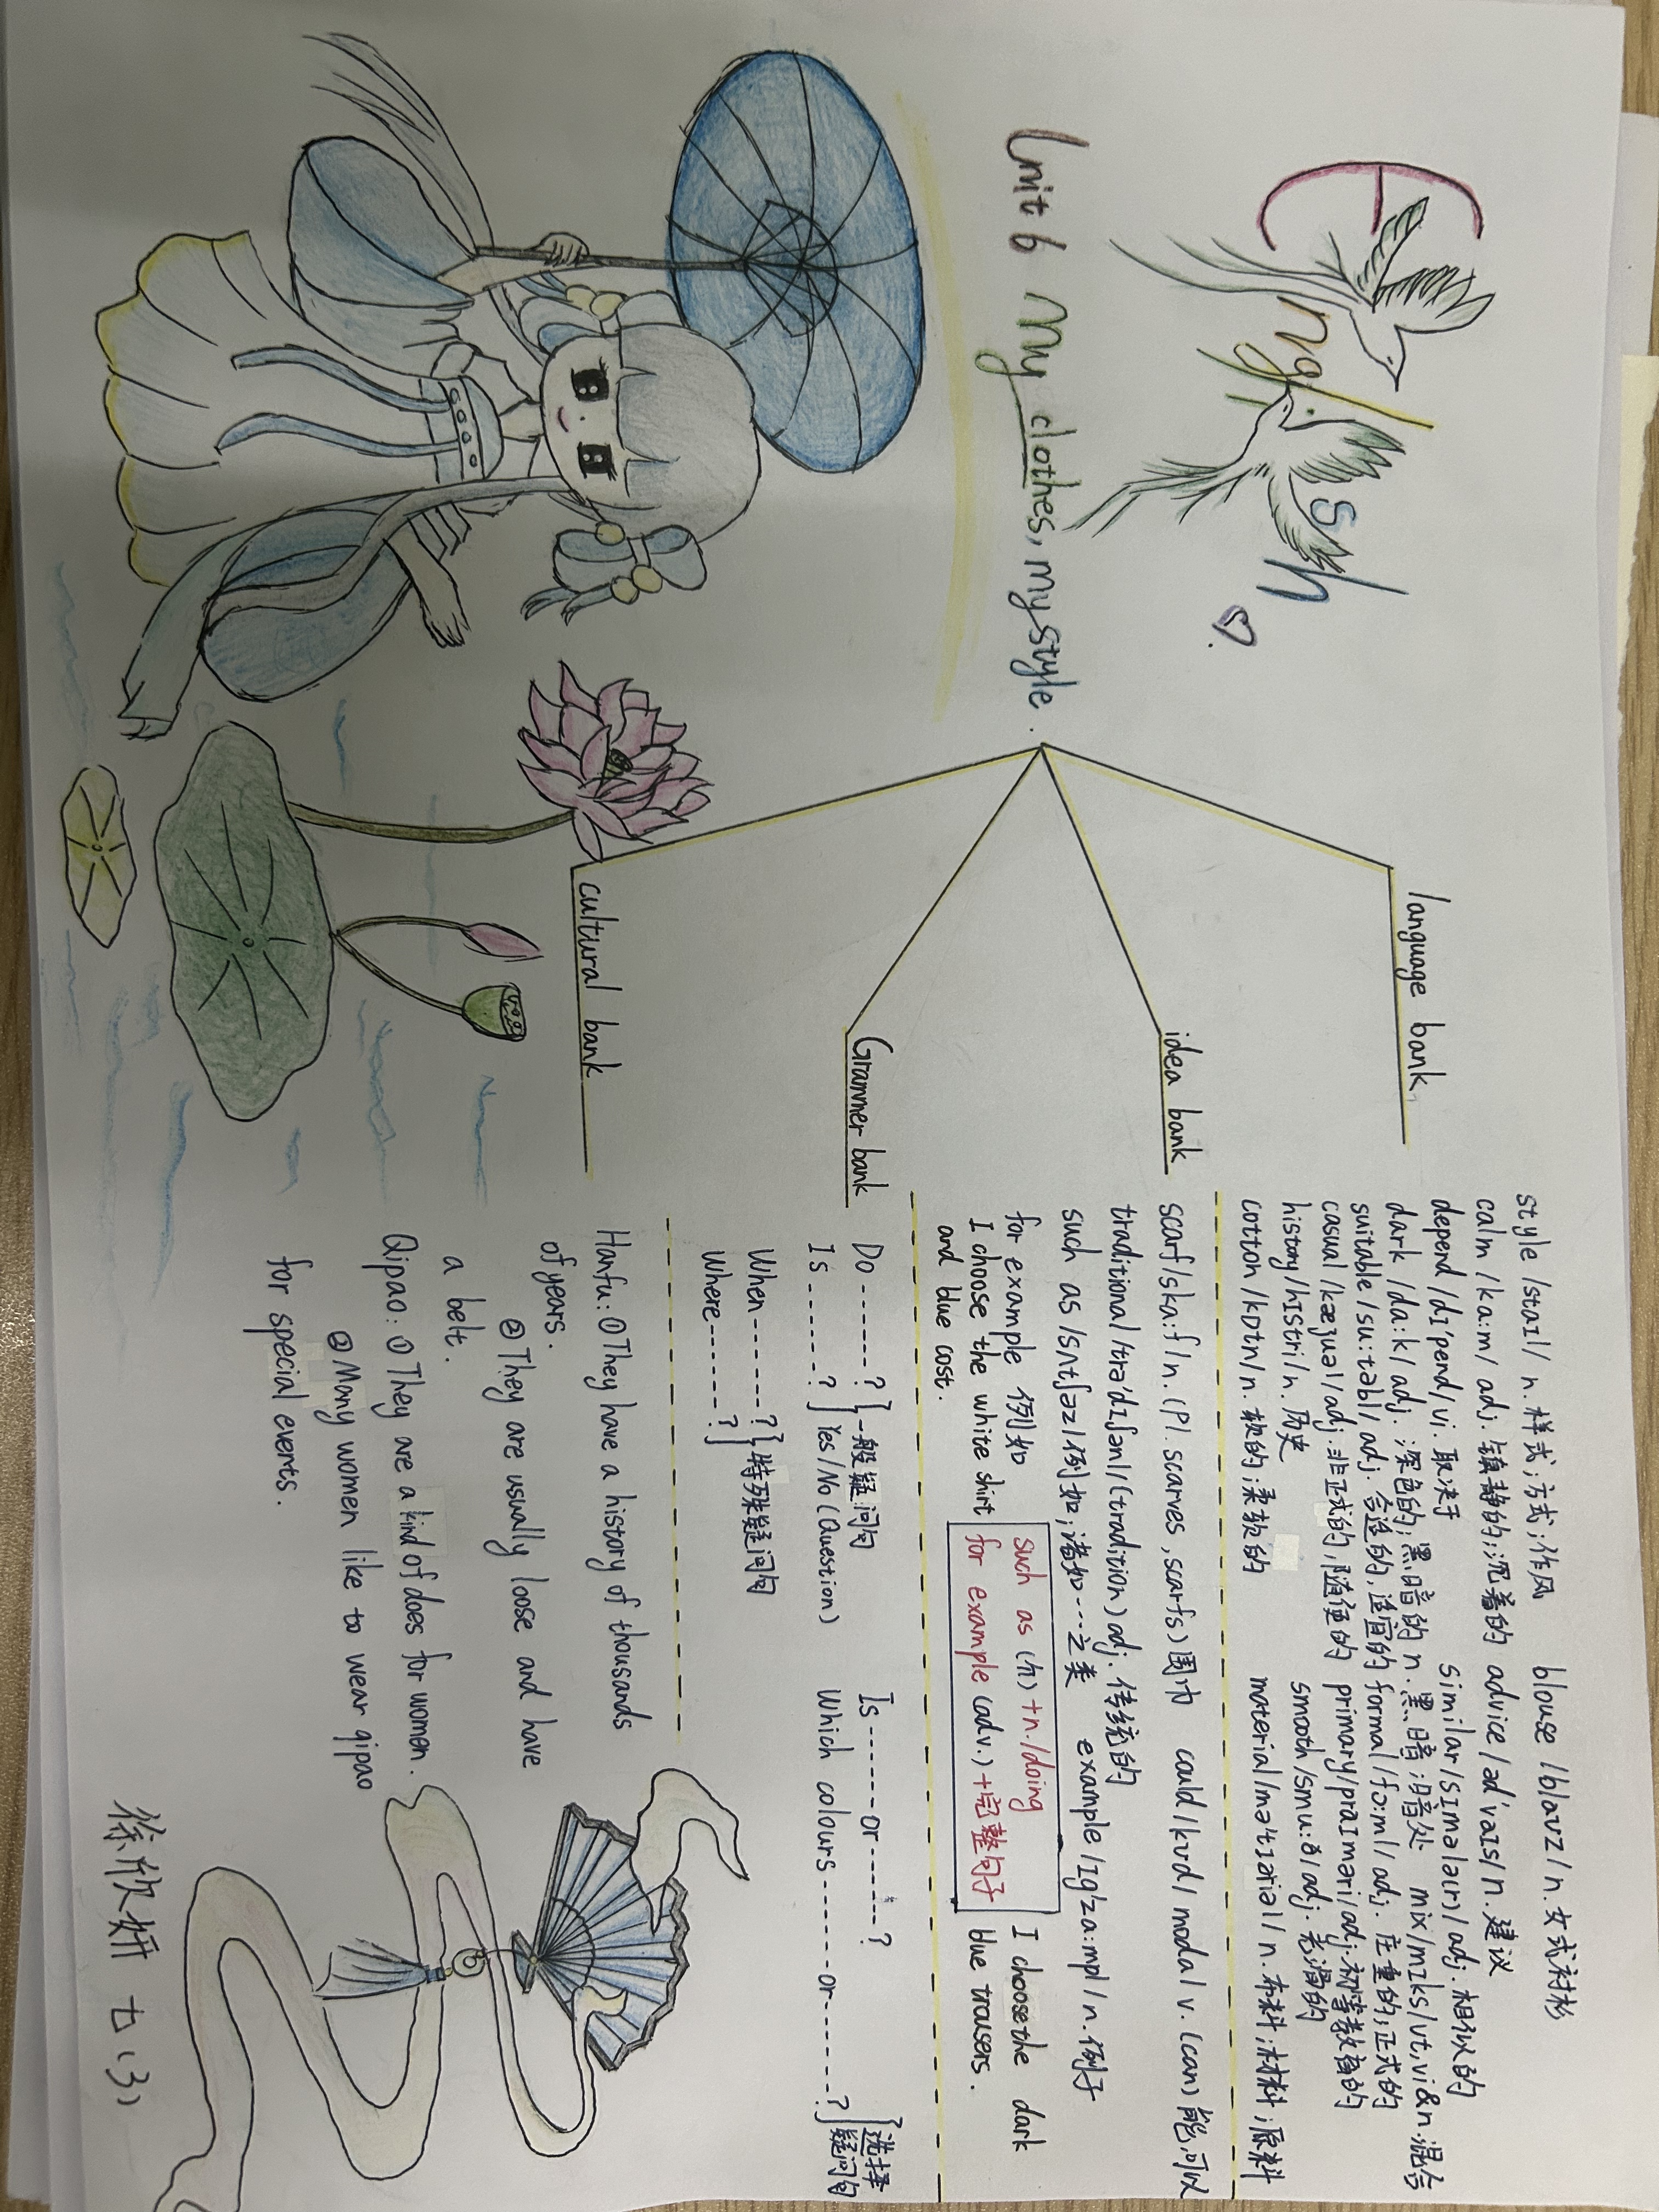 English
Unit 6 My clothes, my style.
language bank
style /staɪl/ n. 样式;方式;作风
blouse /blaʊz/ n. 女式衬衫
calm /ka:m/ adj. 镇静的;沉着的
advice /əd'vaɪs/ n. 建议
depend /dɪ'pend/ vi. 取决于
similar /sɪmələ(r)/ adj. 相似的
dark /da:k/ adj. 深色的;黑暗的 n. 黑暗;暗处
mix /mɪks/ vt,vi&n.混合
suitable /su:təbl/ adj. 合适的,适宜的
formal /fɔ:ml/ adj. 庄重的;正式的
casual /kæʒuəl/ adj. 非正式的,随便的
primary /praɪməri/ adj. 初等教育的
history /hɪstri/ n. 历史
smooth /smu:ð/ adj. 光滑的
cotton /kɒtn/ n. 软的;柔软的
material /mə'tɪəriəl/ n. 布料;材料;原料
idea bank
scarf /ska:f/ n. (Pl. scarves, scarfs) 围巾
could /kʊd/ modal v. (can) 能,可以
traditional /trə'dɪʃənl/ (tradition) adj. 传统的
such as /sʌtʃəz/ 例如;诸如---之类
example /ɪg'za:mpl/ n. 例子
for example 例如
such as (介) + n./doing
for example (adv.) + 完整句子
I choose the white shirt
and blue cost.
I choose the dark
blue trousers.
Grammer bank
Do ------- ?
Is ------- ?
一般疑问句
Yes/No (Question)
When ------- ?
Where ------- ?
特殊疑问句
Is -------or------- ?
Which colours-------or------- ?
选择
疑问句
cultural bank
Hanfu: ①They have a history of thousands
of years.
②They are usually loose and have
a belt.
Qipao: ①They are a kind of does for women.
②Many women like to wear qipao
for special events.
徐欣妍 七(3)